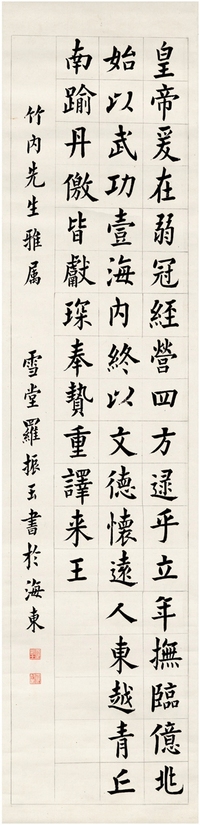 皇帝爰在弱冠經營四方逯乎立年撫臨億兆
始以武功壹海内終以文德懷遠人東越青丘
南踰丹儌皆獻琛奉贄重譯来王
竹内先生雅屬 雪堂羅振玉書於海東